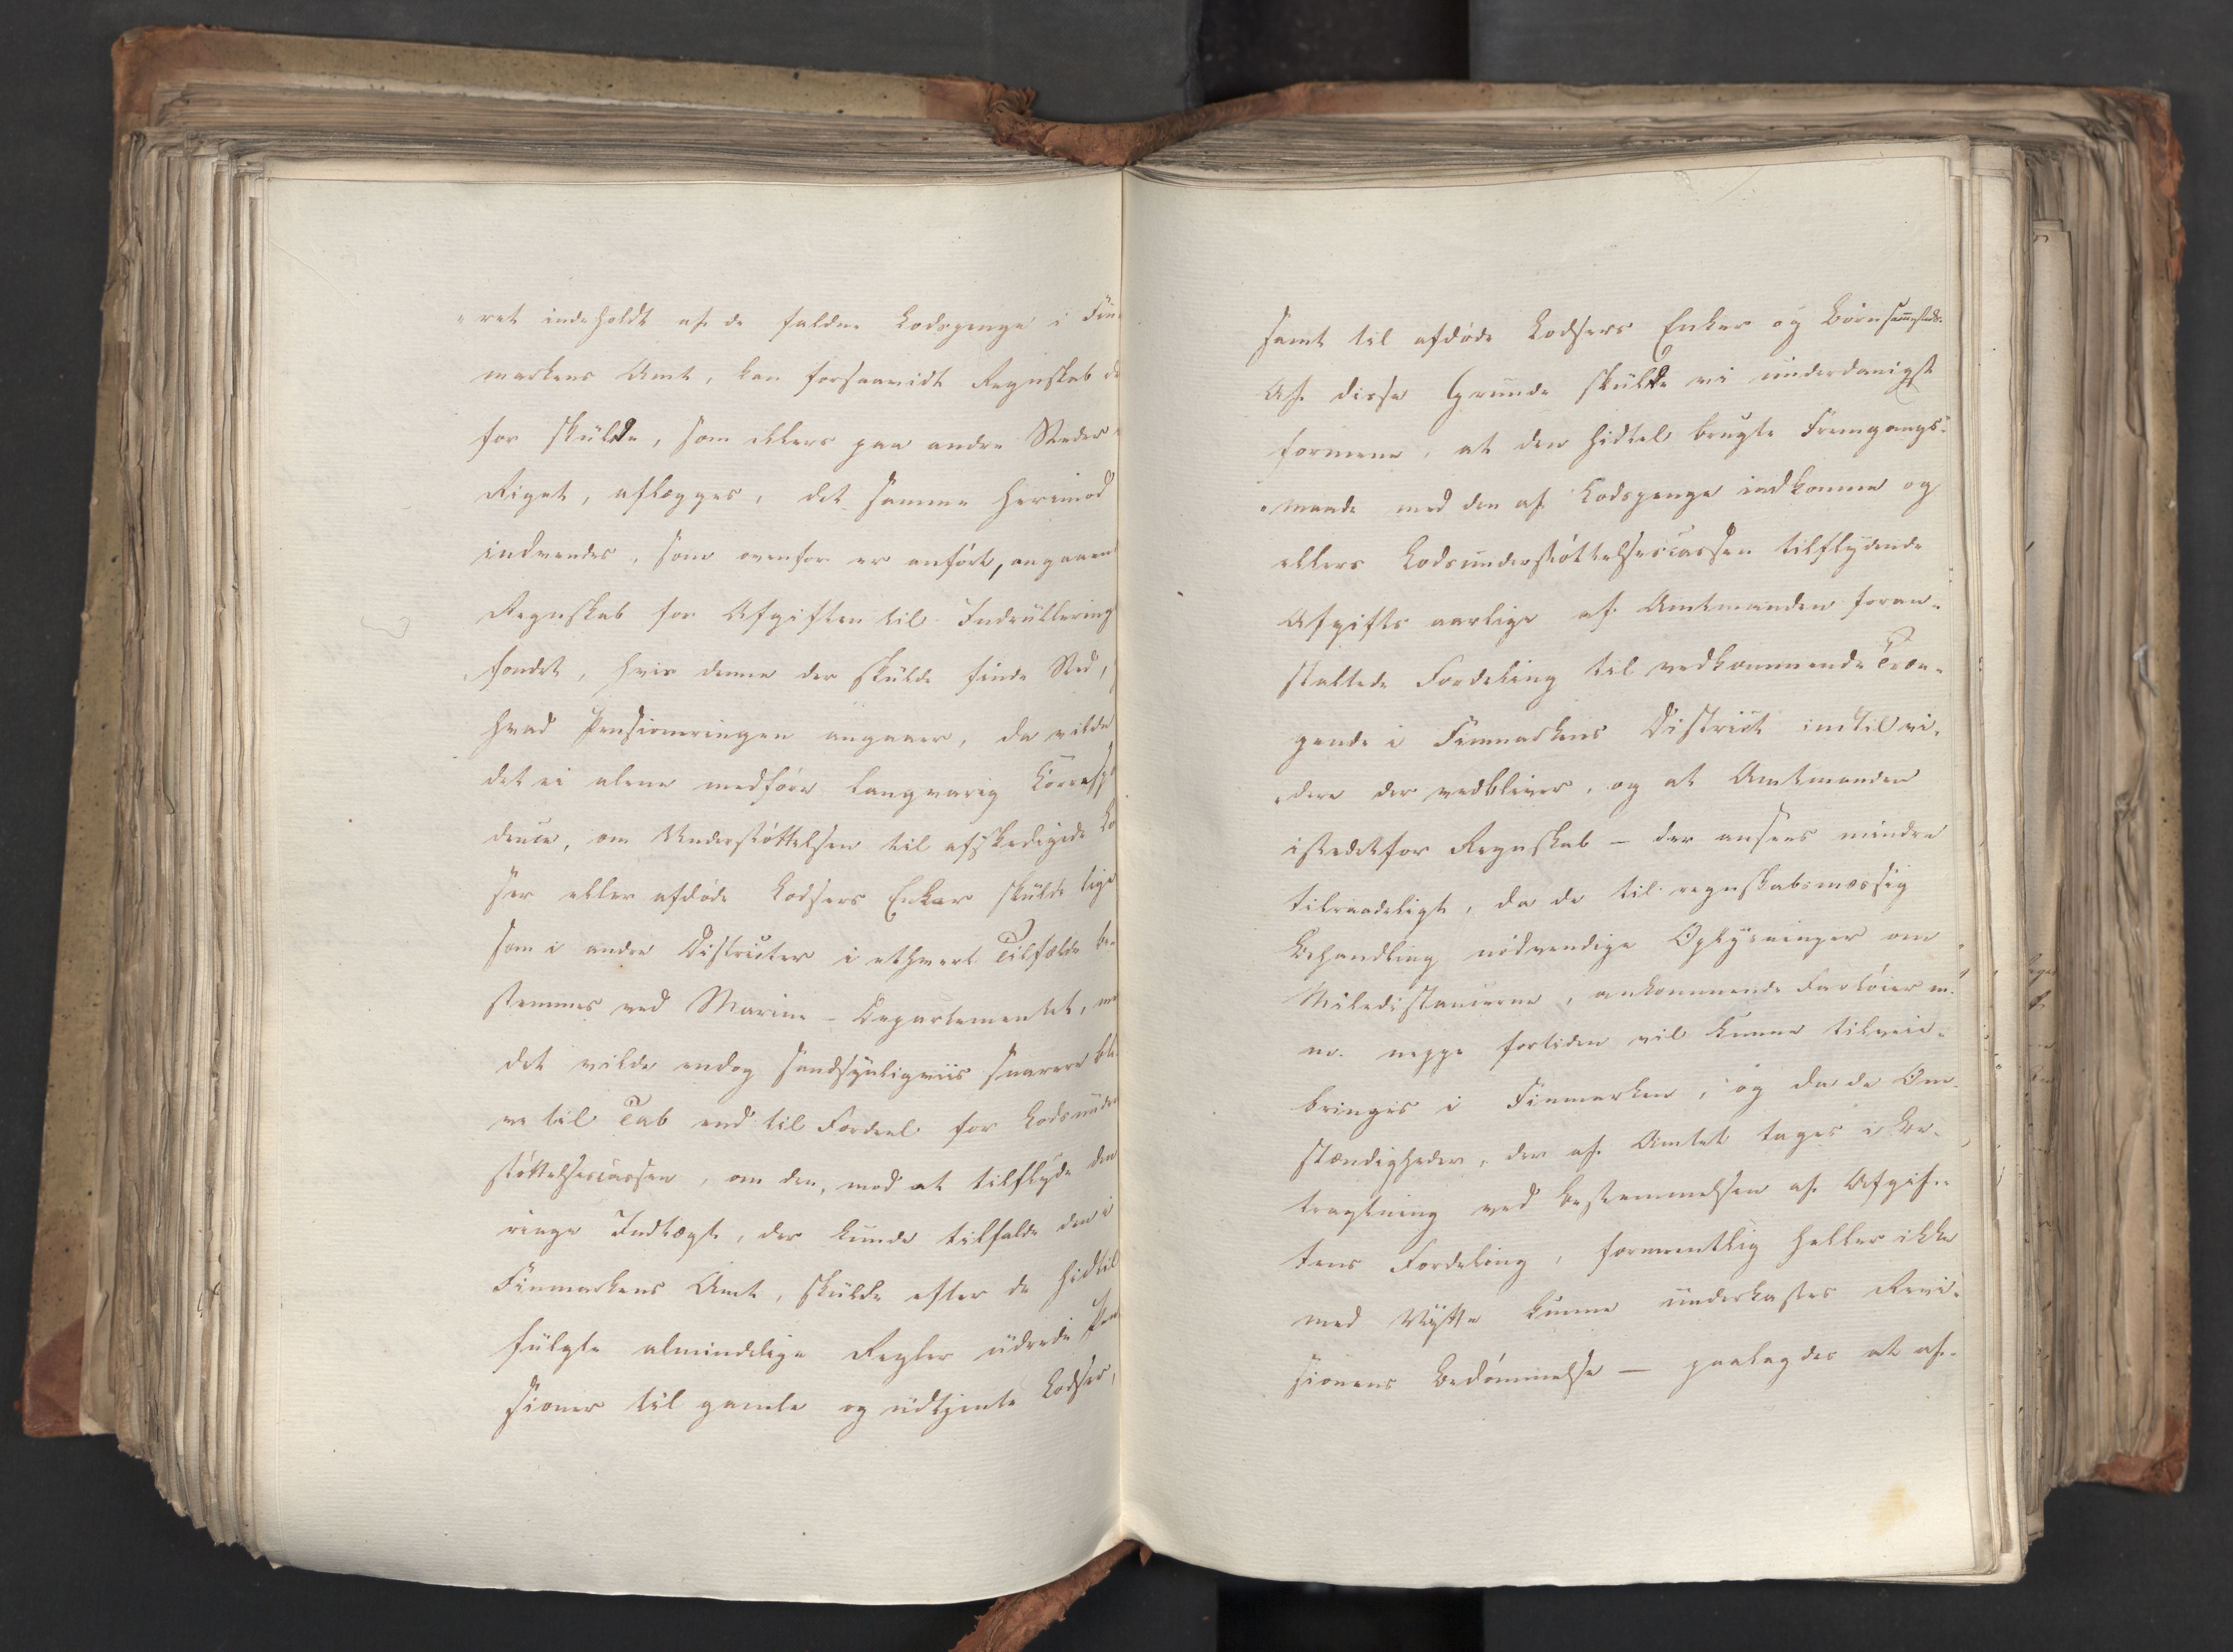 "ret indeholdt af de faldne Lodspenge i Fin
markens Amt, kan forsaavidt Regnskab de
for skulde, som ellers paa andre Steder
Riget, aflægges, det samme herimod
indvendes, som ovenfor er anført, angaaen
Regnskab for Afgiften til Indrullering
fondet, hvis denne der skulde finde Sted,
hvad Pensioneringen angaaer, da vilde
det ei alene medføre langvarig Corresp
dence, om Understøttelsen til afskedigede Lo
ser eller afdøde Lodsers Enker skulde lige
som i andre Districter i ethvert Tilfælde be
stemmes ved Marine-Departementet, me
det vilde endog sandsynligviis snarere bli
ve til Tab end til Fordeel for Lodsunder
støttelsescassen, om den, mod at tilflyde den
ringe Indtægt, der kunde tilfalde den i
Finmarkens Amt, skulde efter de hidtil
fulgte almindelige Regler udrede Pen
sioner til gamle og udtjente Lodser,
samt til afdøde Lodsers Enker og Børn sammesteds.
Af disse Grunde skulde vi underdanigst
formene, at den hidtil brugte Fremgangs-
maade med den af Lodspenge indkomne og
ellers Lodsunderstøttelsescassen tilflydende
Afgifts aarlige af Amtmanden foran-
staltede Fordeling til vedkommende Træn-
gende i Finmarkens District indtil vi-
dere der vedbliver, og at Amtmanden
istedetfor Regnskab – der ansees mindre
tilraadeligt, da de til regnskabsmæssig
Behandling nødvendige Oplysninger om
Miledistancerne, ankommende Fartøier m.
m. neppe fortiden vil kunne tilveie-
bringes i Finmarken, og da de Om-
stændigheder, der af Amtet tages i Be-
tragtning ved Bestemmelsen af Afgif-
tens Fordeling, formeentlig heller ikke
med Nytte kunne underkastes Revi-
sionens Bedømmelse – paalagdes at af-